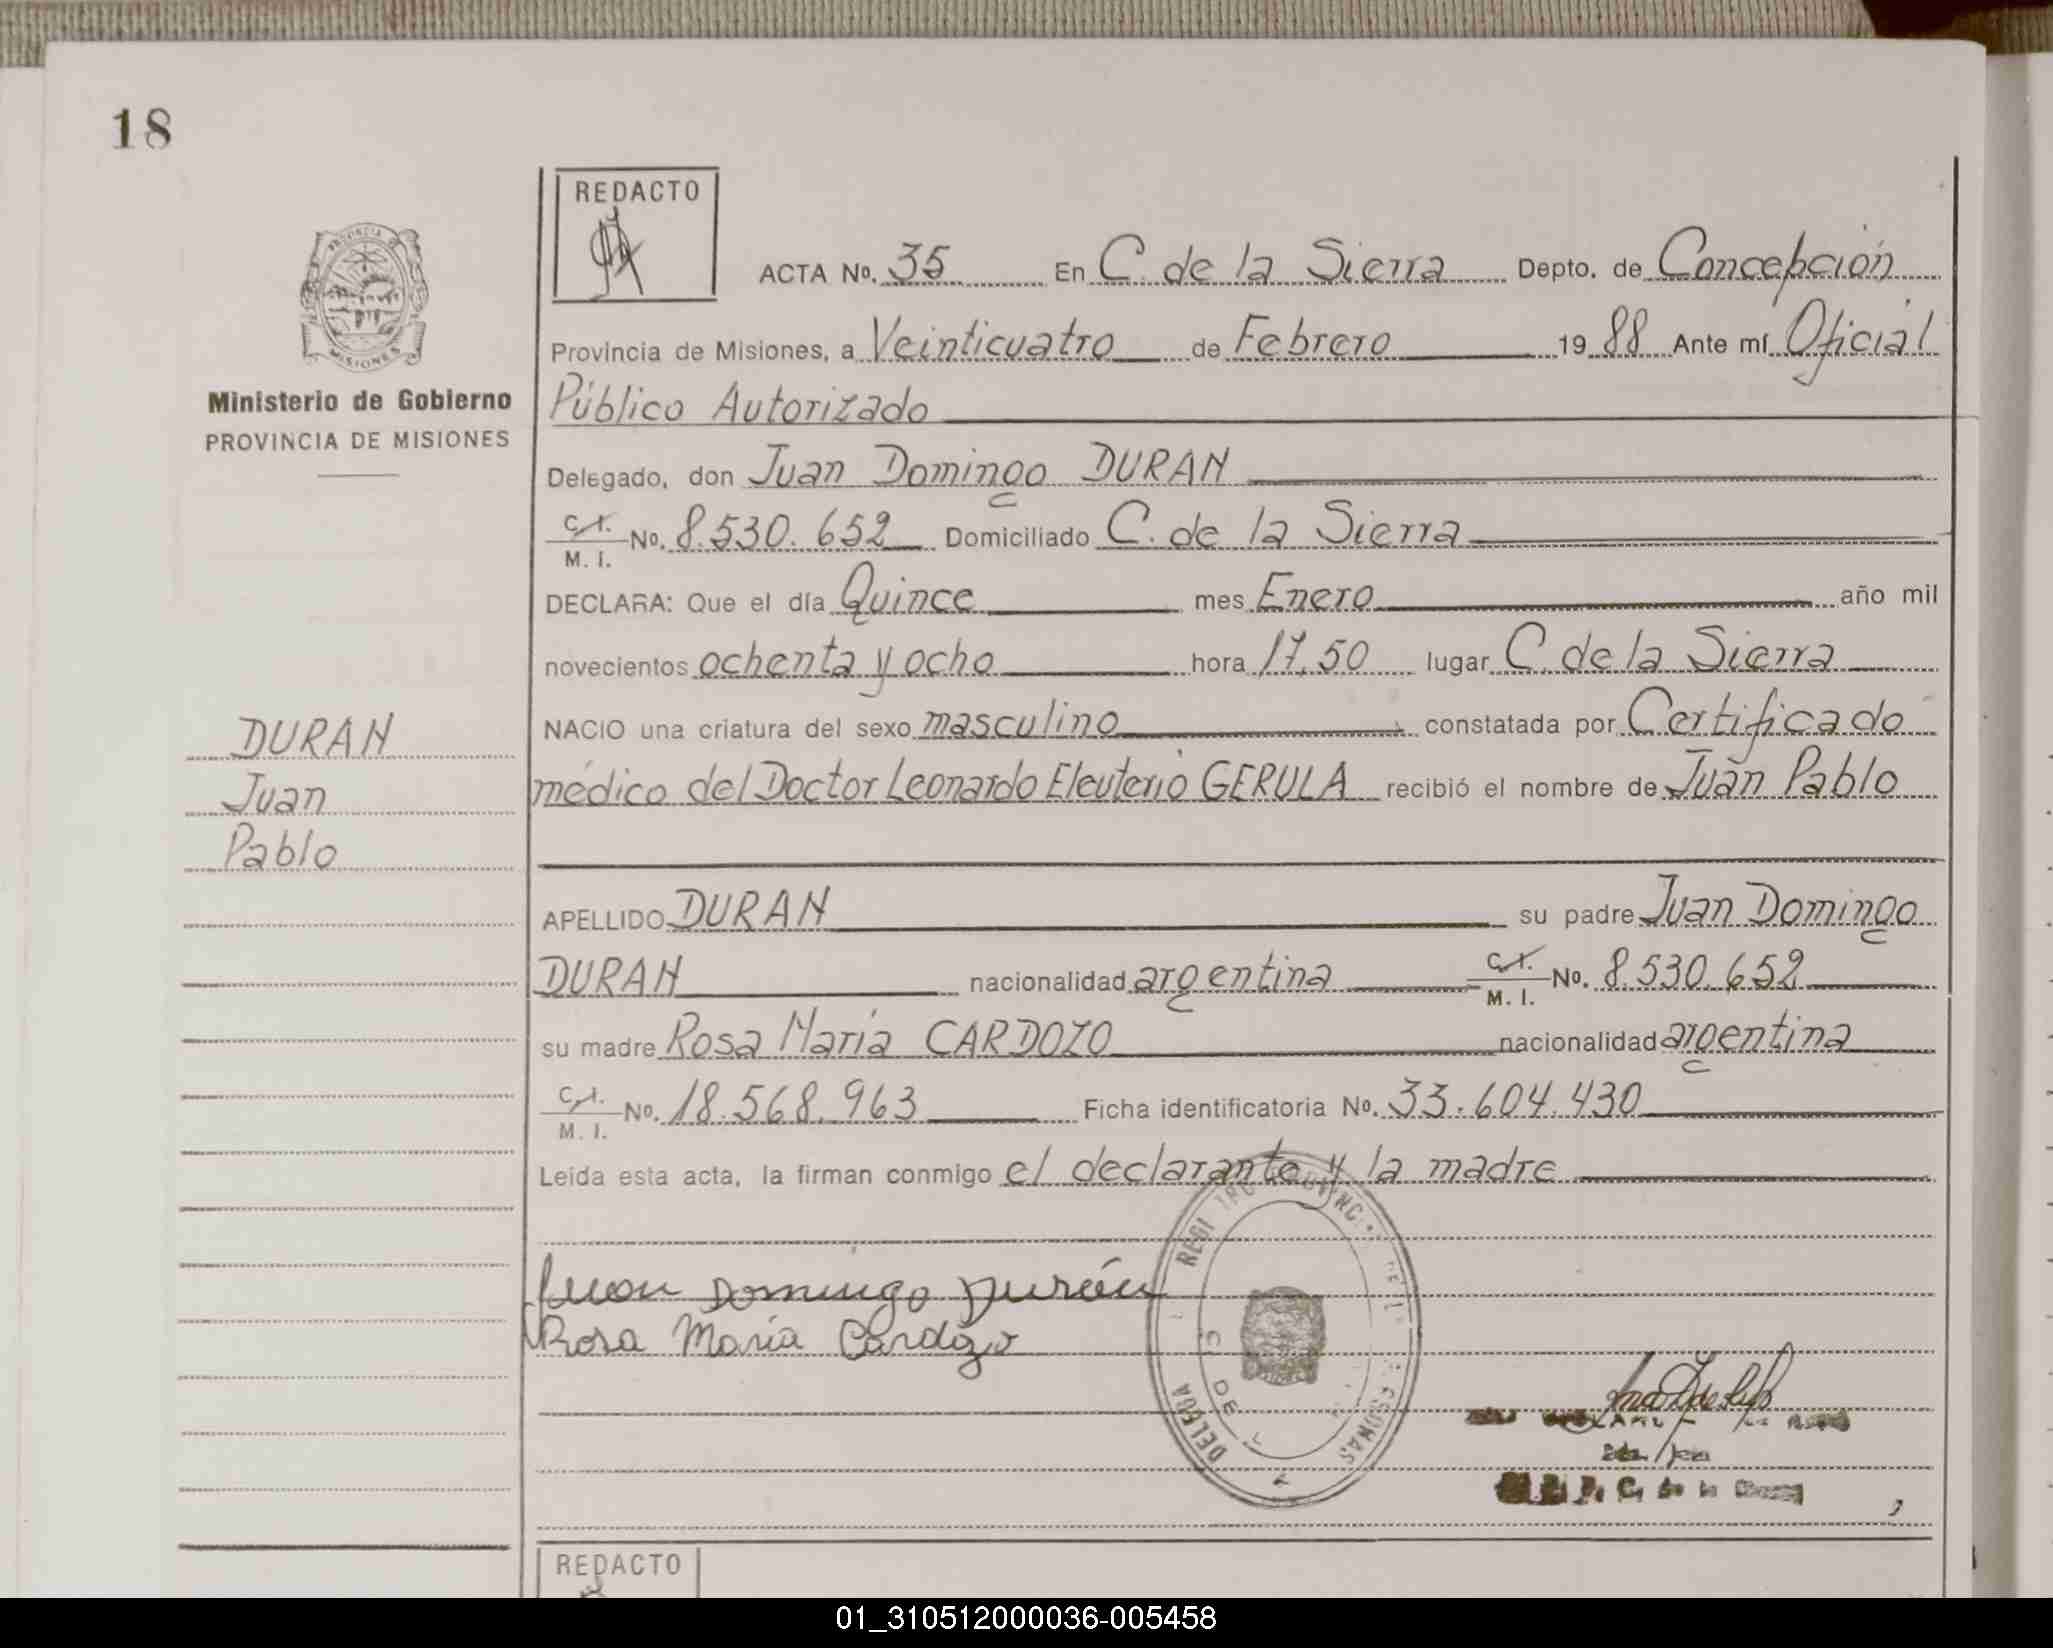 18
REDACTO
PROVINCIA DE
MISIONES
Ministerio de Gobierno
PROVINCIA DE MISIONES
ACTA No. 35 En C. de la Sierra Depto. de Concepción
Provincia de Misiones, a Veinticuatro de Febrero 1988 Ante mí Oficial
Público Autorizado
Delegado, don Juan Domingo DURAN
C.I. / M. I. No. 8.530.652 Domiciliado C. de la Sierra
DECLARA: Que el día Quince mes Enero año mil
novecientos ochenta y ocho hora 17,50 lugar C. de la Sierra
NACIO una criatura del sexo masculino constatada por Certificado
médico del Doctor Leonardo Eleuterio GERULA recibió el nombre de Juan Pablo
DURAN
Juan
Pablo
APELLIDO DURAN su padre Juan Domingo
DURAN nacionalidad argentina C.I. / M. I. No. 8.530.652
su madre Rosa María CARDOZO nacionalidad argentina
C.I. / M. I. No. 18.568.963 Ficha identificatoria No. 33.604.430
Leída esta acta, la firman conmigo el declarante y la madre
Juan Domingo Durán
Rosa María Cardozo
C. de la
REDACTO
01_310512000036-005458